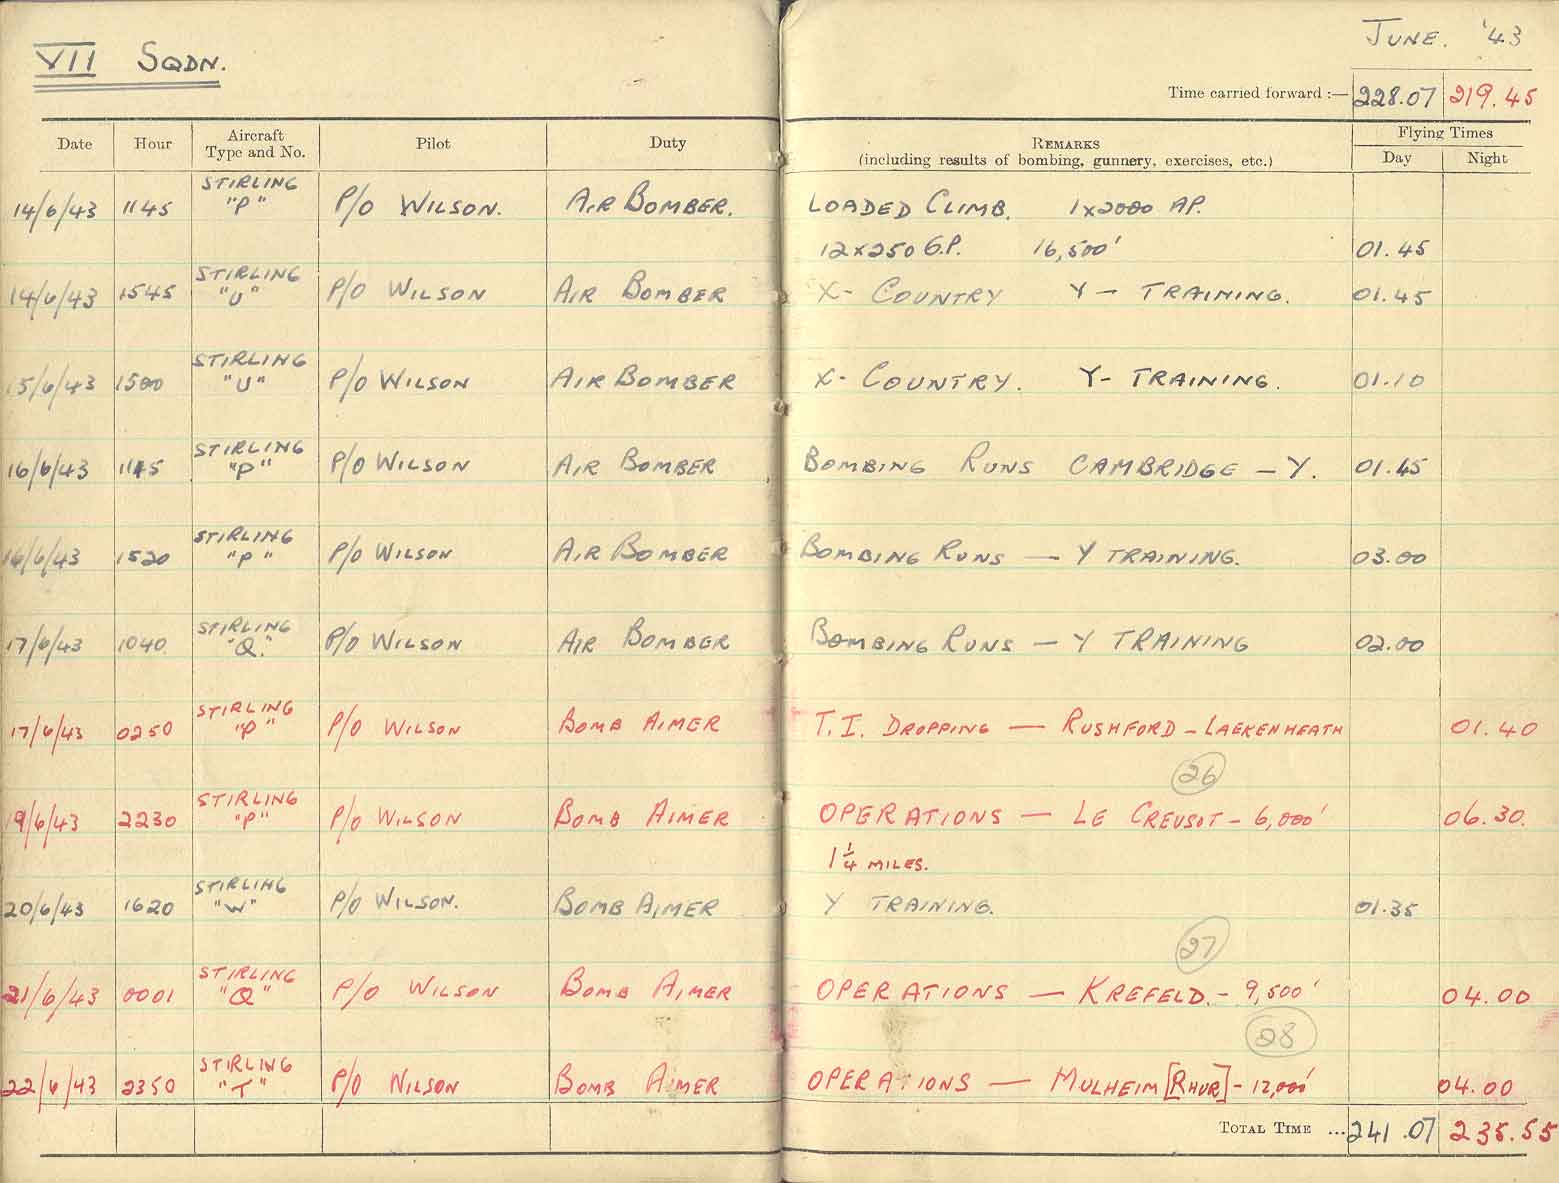 VII SQDN.
JUNE. '43
Time carried forward :— 228.07 219.45
Date Hour Aircraft Type and No. Pilot Duty REMARKS (including results of bombing, gunnery, exercises, etc.) Flying Times Day Night
STIRLING
14/6/43 1145 "P" P/O WILSON. AIR BOMBER. LOADED CLIMB. 1x2000 AP.
12x250 G.P. 16,500' 01.45
STIRLING
14/6/43 1545 "U" P/O WILSON AIR BOMBER X- COUNTRY Y- TRAINING. 01.45
STIRLING
15/6/43 1500 "U" P/O WILSON AIR BOMBER X- COUNTRY. Y- TRAINING. 01.10
STIRLING
16/6/43 1145 "P" P/O WILSON AIR BOMBER BOMBING RUNS CAMBRIDGE - Y. 01.45
STIRLING
16/6/43 1520 "P" P/O WILSON AIR BOMBER BOMBING RUNS — Y TRAINING. 03.00
STIRLING
17/6/43 1040. "Q." P/O WILSON AIR BOMBER BOMBING RUNS — Y TRAINING 02.00
STIRLING
17/6/43 0250 "P" P/O WILSON BOMB AIMER T.I. DROPPING — RUSHFORD - LAEKENHEATH 01.40
26
STIRLING
19/6/43 2230 "P" P/O WILSON BOMB AIMER OPERATIONS — LE CREUSOT - 6,000' 06.30.
1 1/4 MILES.
STIRLING
20/6/43 1620 "W" P/O WILSON. BOMB AIMER Y TRAINING. 01.35
27
STIRLING
21/6/43 0001 "Q" P/O WILSON BOMB AIMER OPERATIONS — KREFELD. - 9,500' 04.00
28
STIRLING
22/6/43 2350 "T" P/O WILSON BOMB AIMER OPERATIONS — MULHEIM [RHUR] - 12,000' 04.00
TOTAL TIME ... 241.07 235.55